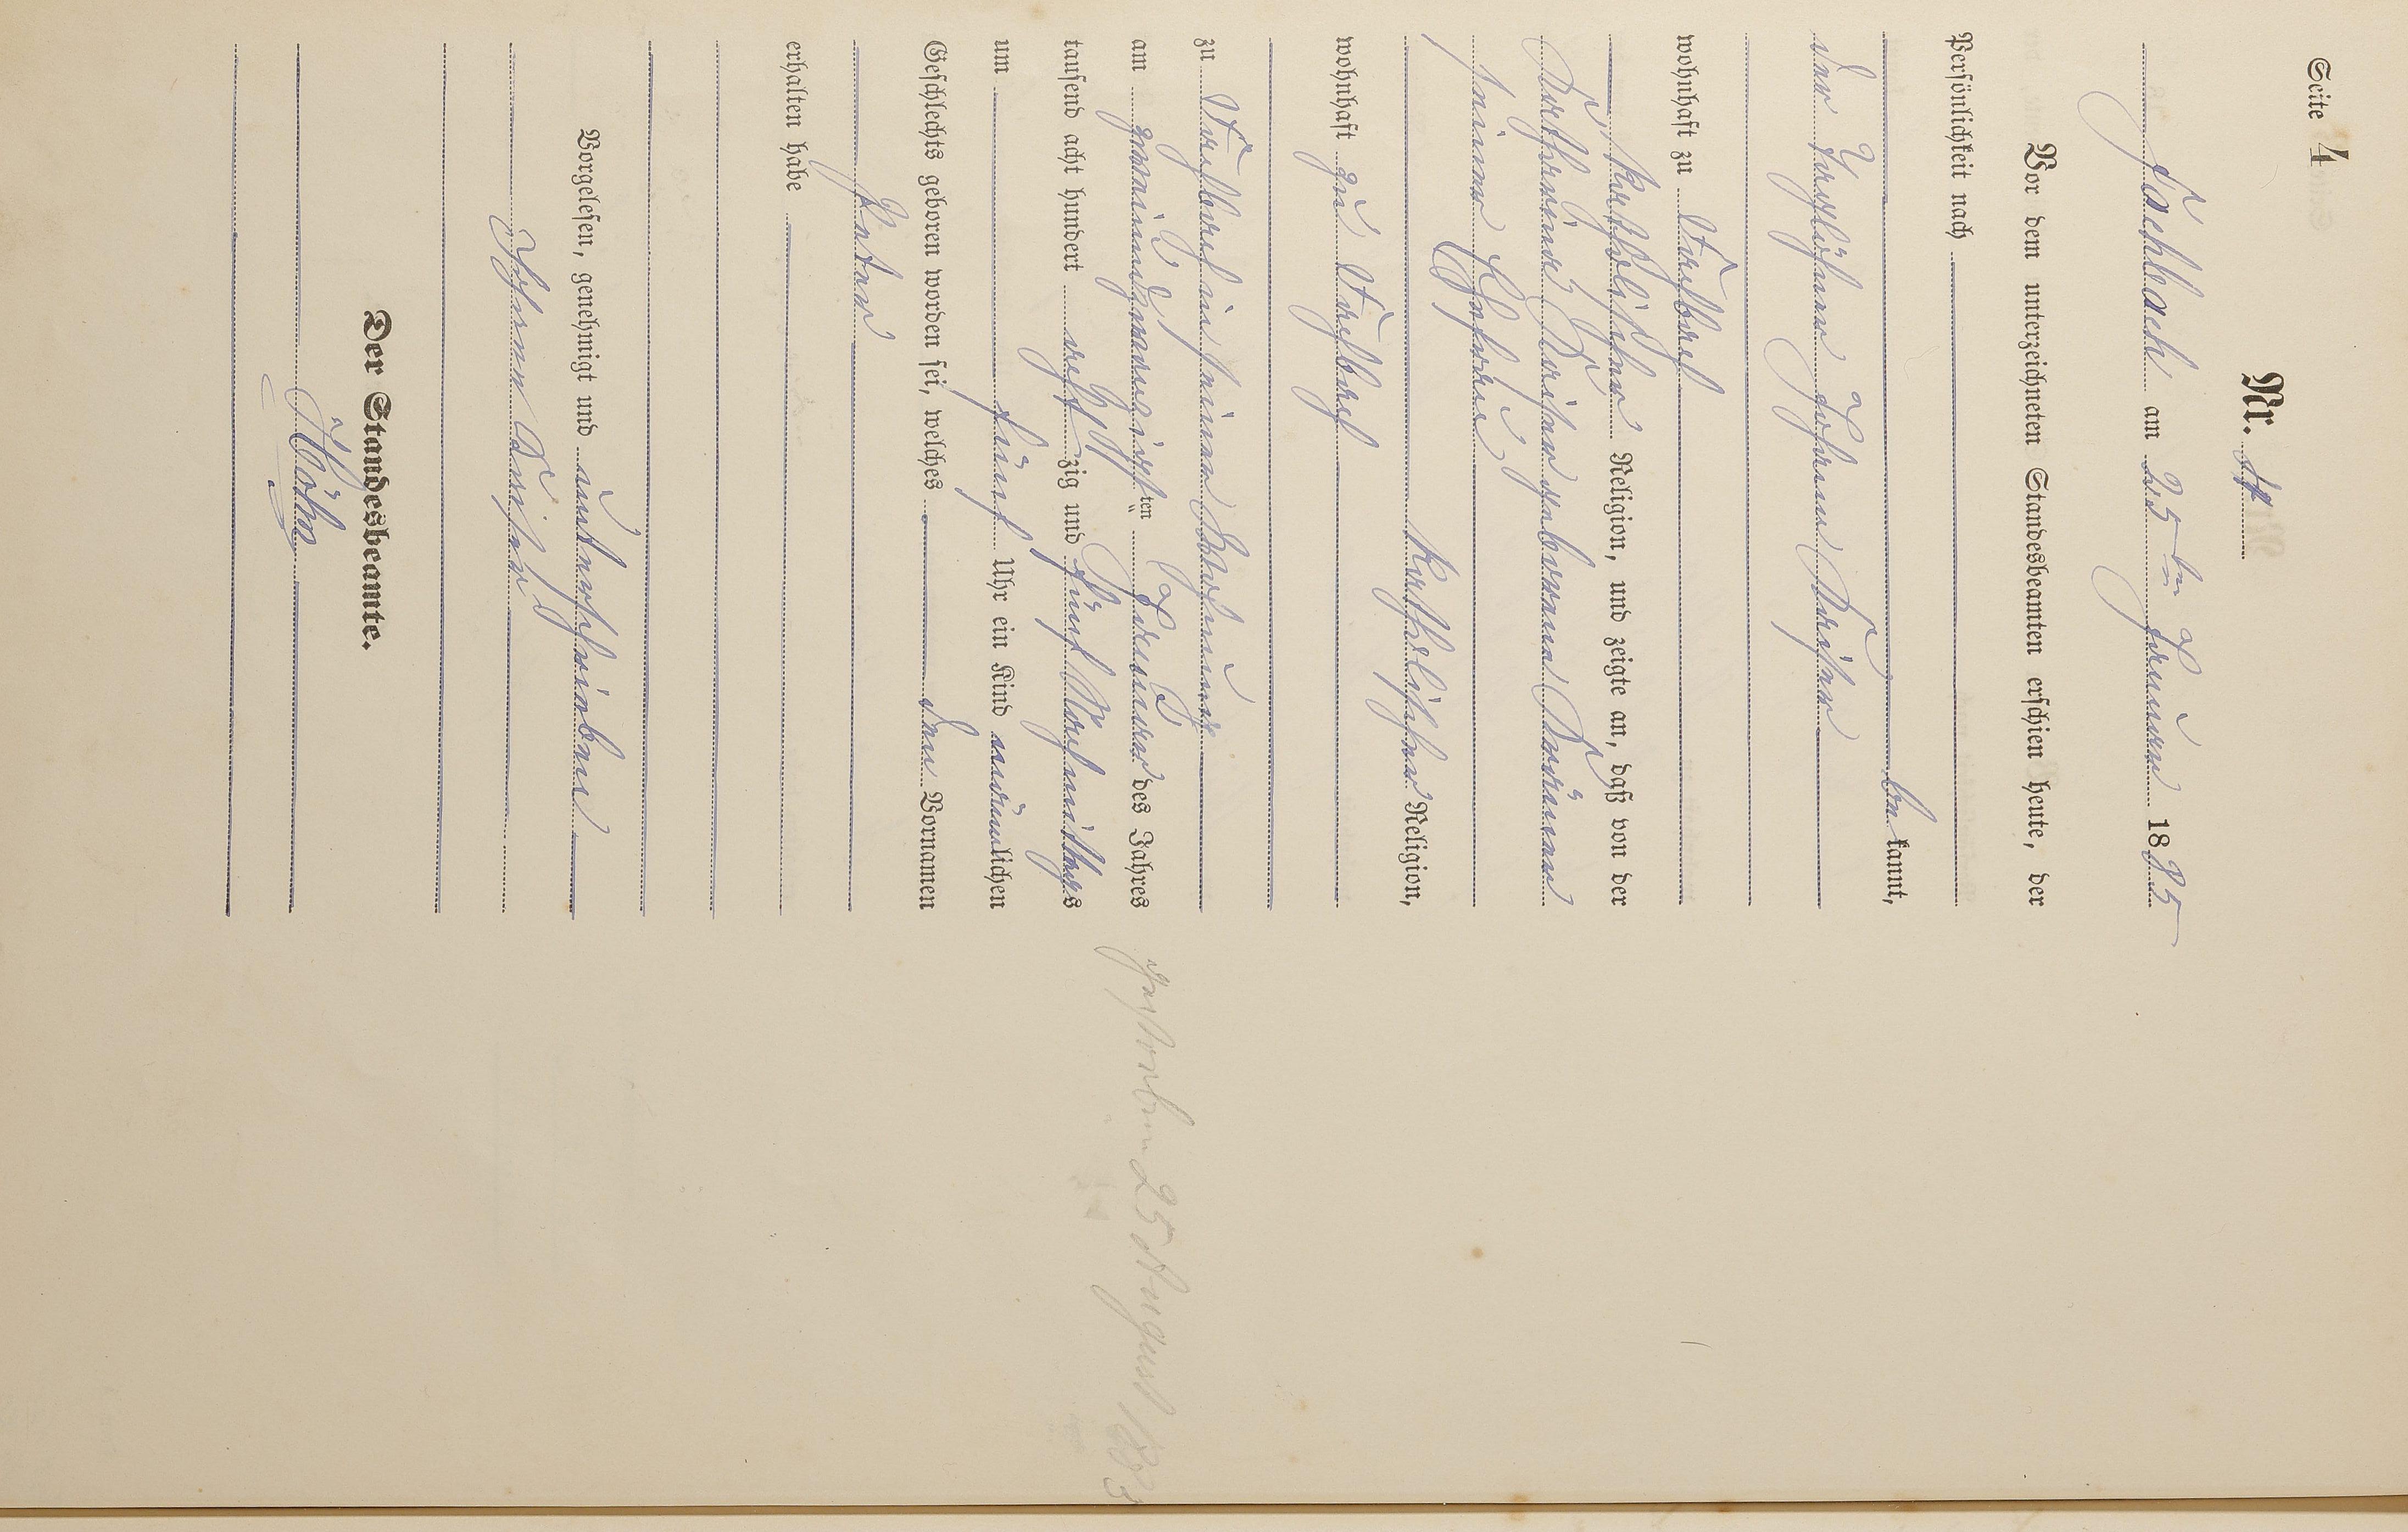 Seite 4
Nr. 4
Fachbach am 25ten Januar 1885
Vor dem unterzeichneten Standesbeamten erschien heute, der
Persönlichkeit nach
bekannt,
der Taglöhner Johann
wohnhaft zu Fachbach
katholischer Religion, und zeigte an, daß von der
geborene
seiner Ehefrau
katholischer Religion,
wohnhaft zu Fachbach
zu Fachbach in seiner Wohnung
am zweiundzwanzigsten Januar des Jahres
tausend acht hundert achtzig und fünf Nachmittags
um fünf Uhr ein Kind männlichen
Geschlechts geboren worden sei, welches den Vornamen
Peter
erhalten habe
Vorgelesen, genehmigt und unterschrieben
Johann
Der Standesbeamte.
Höhn
gestorben 25 August